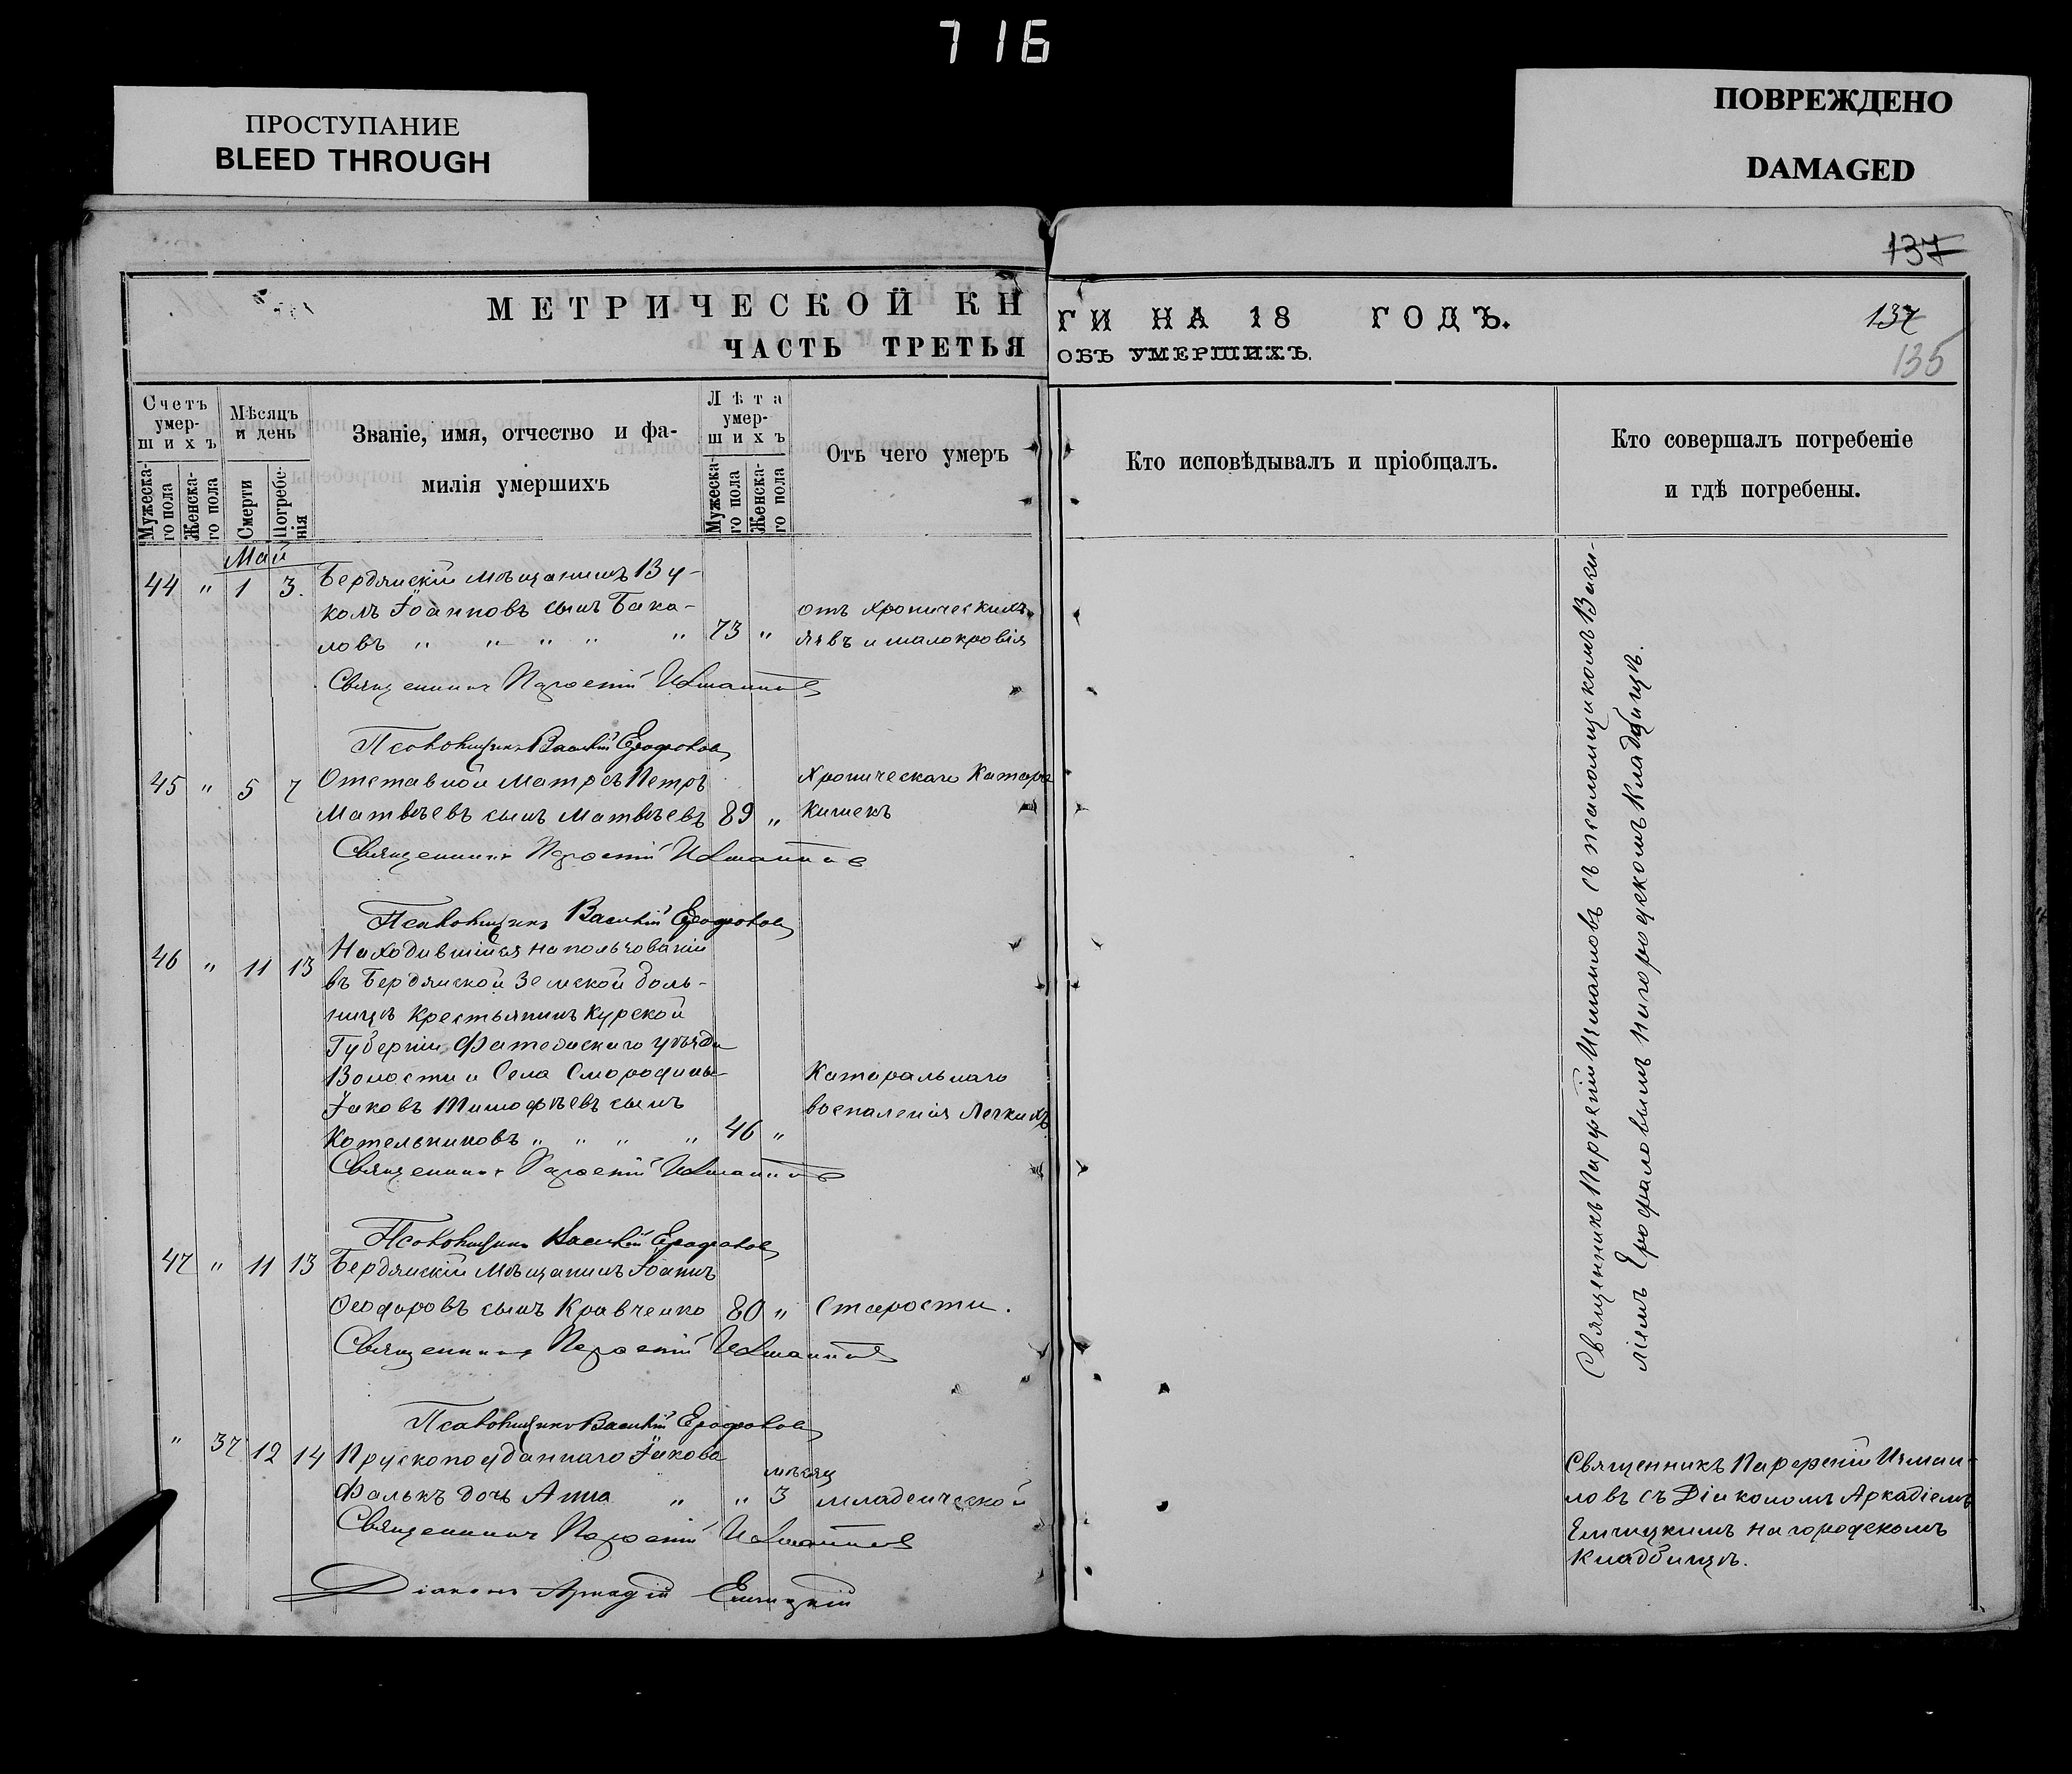 716
ПРОСТУПАНИЕ
BLEED THROUGH
ПОВРЕЖДЕНО
DAMAGED
137
МЕТРИЧЕСКОЙ КН
ГИ НА 18 ГОДЪ.
137
ЧАСТЬ ТРЕТЬЯ
ОБЪ УМЕРШИХЪ.
135
Счетъ умер-
шихъ
Мужеска-
го пола
Женска-
го пола
Мѣсяцъ
и день
Смерти
Погребе-
нія
Званіе, имя, отчество и фа-
милія умершихъ
Лѣта
умер-
шихъ
Мужеска-
го пола
Женска-
го пола
Отъ чего умеръ
Кто исповѣдывалъ и пріобщалъ.
Кто совершалъ погребеніе
и гдѣ погребены.
Май
44 " 1 3. Бердянскій мѣщанинъ Ву-
колъ Іоанновъ сынъ Бака- отъ хроническихъ
ловъ " " " " " 73 " язвъ и малокровія
Священникъ Парѳеній Измаиловъ
Псаломщикъ Василій Ерофаловъ
45 " 5 7 Отставной Матросъ Петръ Хроническаго Катара
Матвѣевъ сынъ Матвѣевъ 89 " Кишекъ
Священникъ Парѳеній Измаиловъ
Псаломщикъ Василій Ерофаловъ
46 " 11 13 Находившійся на пользованіи
въ Бердянской Земской боль-
ницѣ Крестьянинъ Курской
Губерніи Фатежскаго уѣзда
Волости и Села Смородины Катаральнаго
Іаковъ Тимофѣевъ сынъ воспаленія Легкихъ
Котельниковъ " " " " 46 "
Священникъ Парѳеній Измаиловъ
Псаломщикъ Василій Ерофаловъ
47 " 11 13 Бердянскій Мѣщанинъ Іоаннъ
Ѳеодоровъ сынъ Кравченко 80 " Старости.
Священникъ Парѳеній Измаиловъ
Псаломщикъ Василій Ерофаловъ
" 37 12 14 Прускоподданнаго Іакова мѣсяц
Фалькъ дочь Анна " " 3 младенческой
Священникъ Парѳеній Измаиловъ
Діаконъ Аркадій
Священникъ Парфеній Измаиловъ съ псаломщикомъ Васи-
ліемъ Ерофаловымъ на городскомъ кладбищѣ.
Священникъ Парфеній Измаи-
ловъ съ Діакономъ Аркадіемъ
на городскомъ
Кладбищѣ.